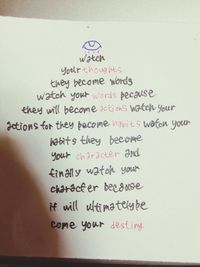 watch
your thoughts
they become words
watch your words because
they will become actions watch your
actions for they become habits watch your
habits they become
your character and
finally watch your
character because
it will ultimately be
come your destiny